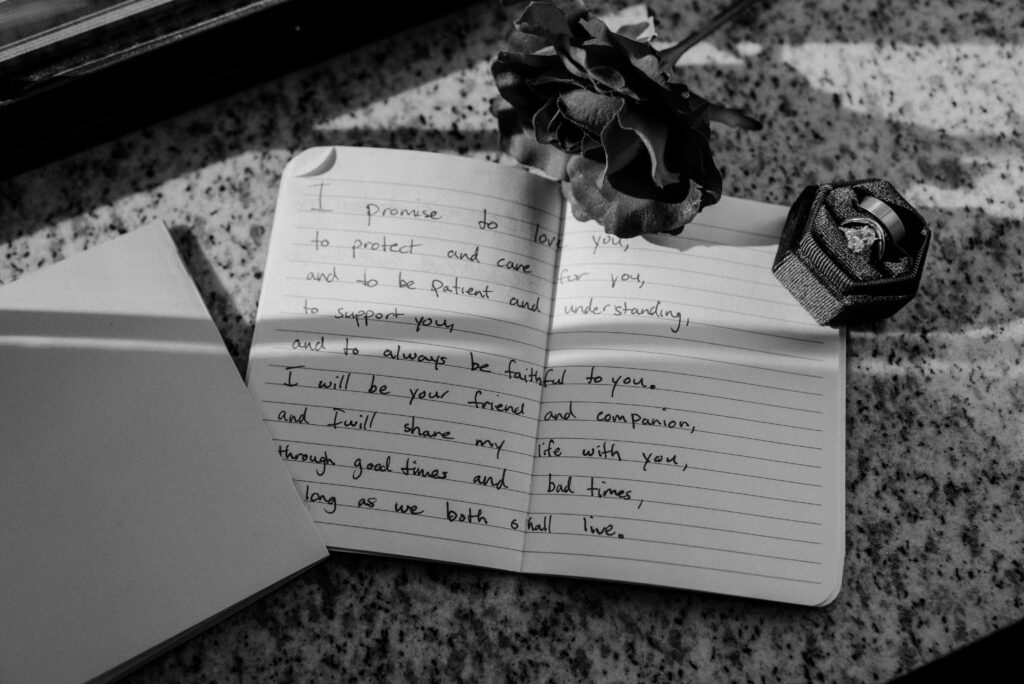 I promise to love you,
to protect and care for you,
and to be patient and understanding,
to support you,
and to always be faithful to you.
I will be your friend and companion,
and I will share my life with you,
through good times and bad times,
long as we both shall live.